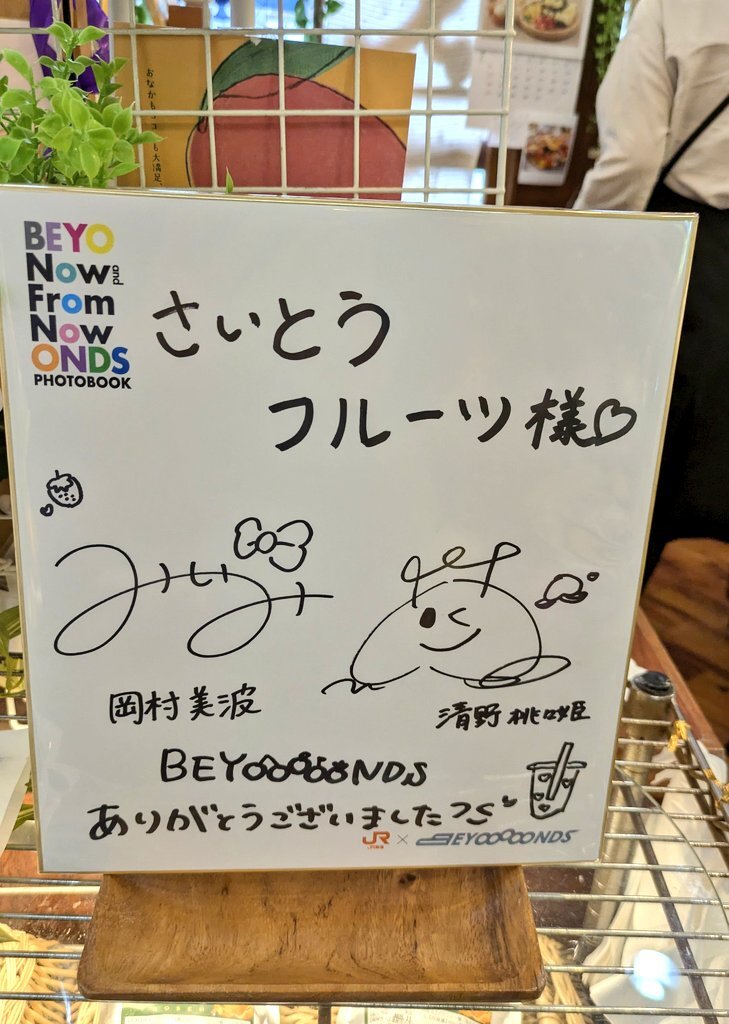 おなかもココロも大満足
BEYO
Now and
From
Now
ONDS
PHOTOBOOK
さいとう
フルーツ様
みいみ
岡村美波
清野桃々姫
BEYOOOOONDS
ありがとうございました
JR
JR東海
×
BEYOOOOONDS